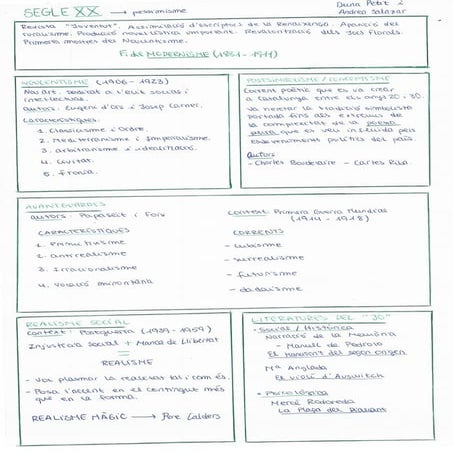 SEGLE XX → pessimisme
Duna Petit 2
Andrea Salazar
Revista "Joventut". Assimilació d'escriptors de la Renaixença. Aparició del
ruralisme. Producció novel·lística important. Revalorització dels Jocs Florals.
Primeres mostres del Noucentisme.
Fi del MODERNISME (1881 - 1911)
NOUCENTISME (1906 - 1923)
Nou art. Sensibilitat a l'elit social i
intel·lectual.
Autors: Eugeni d'Ors i Josep Carner.
Característiques:
1. Classicisme i Ordre.
2. Mediterranisme i Imperialisme.
3. Arbitrarisme i idealització.
4. Civitat.
5. Ironia.
POSTSIMBOLISME /
Corrent poètic que es va crear
a Catalunya entre els anys 20 - 30.
Va heretar la tradició simbolista
portada fins als extrems de
la complexitat de la poesia
pura que es veu influïda pels
esdeveniments polítics del país.
Autors
- Charles Baudelaire - Carles Riba.
AVANTGUARDES
autors: Papasseit i Foix
Context: Primera Guerra Mundial
(1914 - 1918)
CARACTERÍSTIQUES
1. Primitivisme
2. antirealisme
3. Irracionalisme
4. Volació
CORRENTS
- cubisme
- surrealisme
- futurisme
- dadaisme
REALISME SOCIAL
Context: Postguerra (1939 - 1959)
Injustícia social + Manca de llibertat
=
REALISME
- Vol plasmar la realitat tal i com és.
- Posa l'accent en el contingut més
que en la forma.
REALISME MÀGIC → Pere Calders
LITERATURES DEL "30"
• Social / Històrica
Narració de la Memòria
- Manuel de Pedrolo
El mecanoscrit del segon origen.
Mª Anglada
El violí d'Auswitch
• Psicològica
Mercè Rodoreda
La Plaça del Diamant